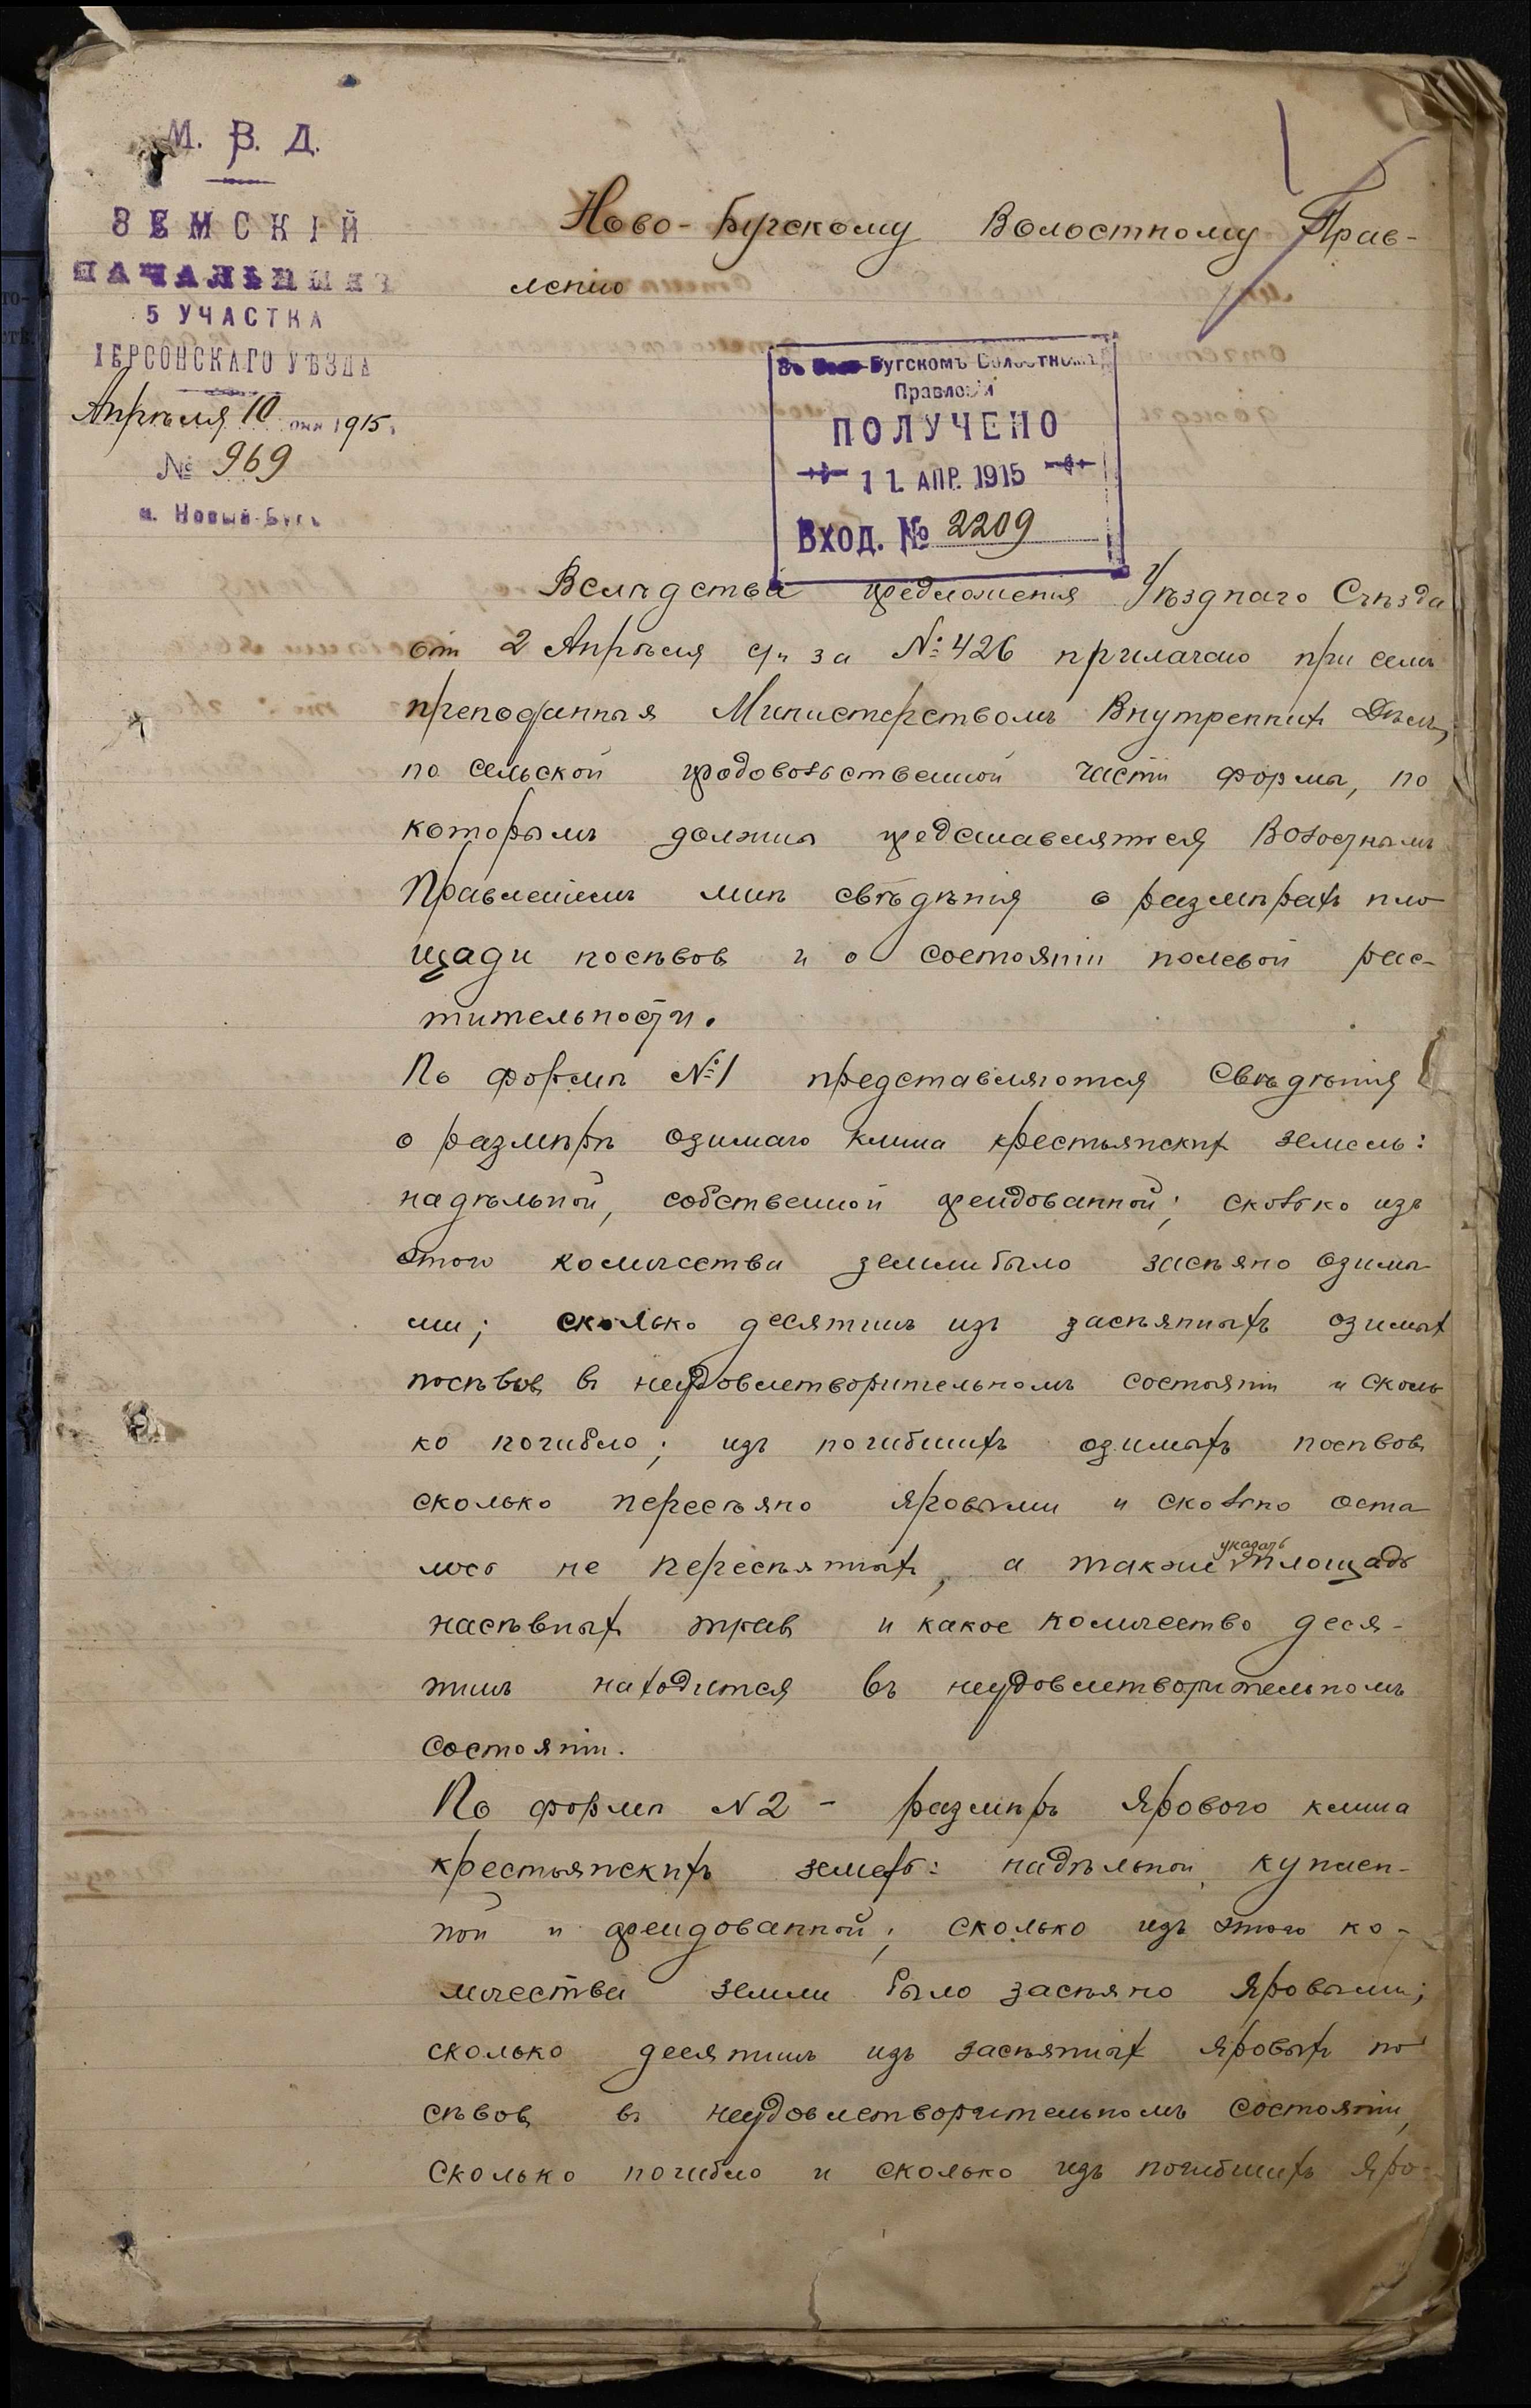 М. В. Д.
ЗЕМСКІЙ
НАЧАЛЬНИКЪ
5 УЧАСТКА
ХЕРСОНСКАГО УѢЗДА
Апрѣля 10 дня 1915 г.
№ 969
м. Новый-Бугъ
Ново-Бугскому Волостному Прав-
ленію
Въ Ново-Бугскомъ Волостномъ
Правленіи
ПОЛУЧЕНО
11 АПР. 1915
Вход. № 2209
Вслѣдствіе предложенія Уѣзднаго Съѣзда
отъ 2 Апрѣля с/г за № 426 прилагаю при семъ
преподанныя Министерствомъ Внутреннихъ Дѣлъ,
по сельской продовольственной части формы, по
которымъ должны представляться Волостнымъ
Правленіемъ мнѣ свѣдѣнія о размѣрахъ пло
щади посѣвовъ и о состояніи полевой рас-
тительности.
По формѣ № 1 представляются свѣдѣнія
о размѣрѣ озимаго клина крестьянскихъ земель:
надѣльной, собственной арендованной; сколько изъ
этого количества земли было засѣяно озимы
ми; сколько десятинъ изъ засѣянныхъ озимыхъ
посѣвовъ въ неудовлетворительномъ состояніи и сколь
ко погибло; изъ погибшихъ озимыхъ посѣвовъ
сколько пересѣяно яровыми и сколько оста
лось не пересѣянныхъ, а также указать площадь
насѣвныхъ травъ и какое количество деся-
тинъ находится въ неудовлетворительномъ
состояніи.
По формѣ N 2 - размѣръ ярового клина
крестьянскихъ земель: надѣльной, куплен-
ной и арендованной; сколько изъ этого ко-
личества земли было засѣяно яровыми;
сколько десятинъ изъ засѣянныхъ яровыхъ по
сѣвовъ въ неудовлетворительномъ состояніи,
сколько погибло и сколько изъ погибшихъ яро-